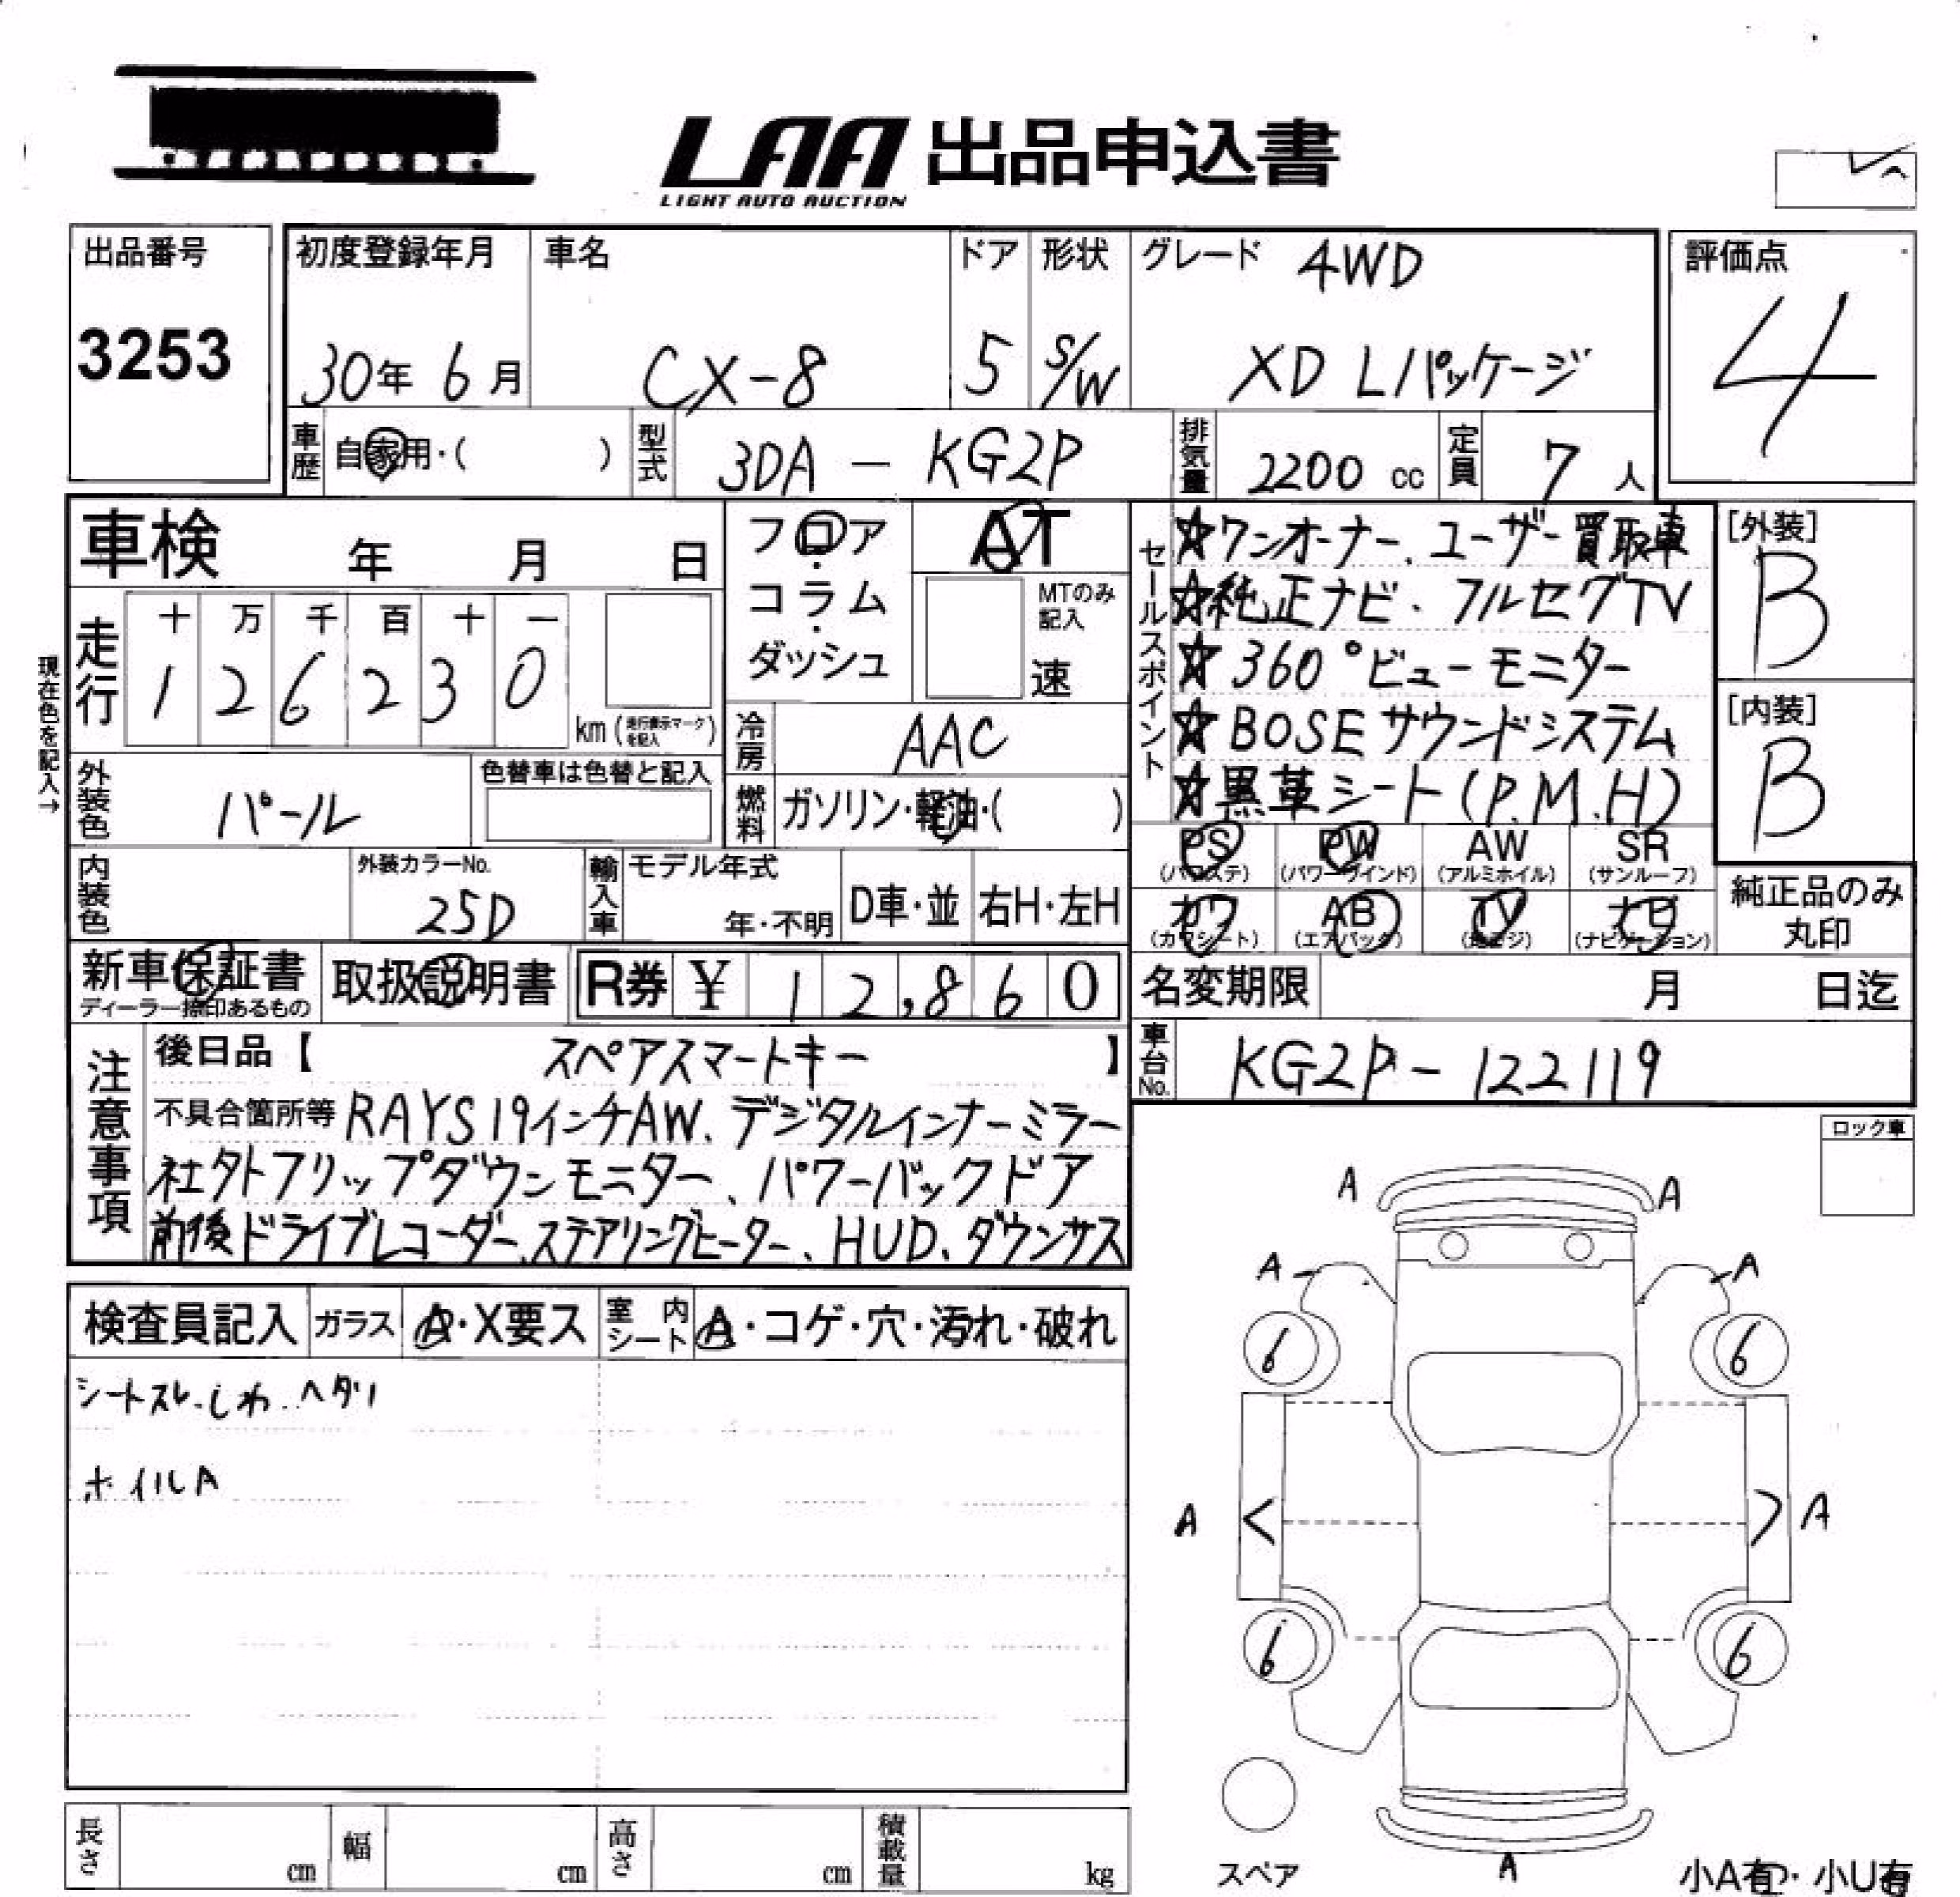 LAA 出品申込書
LIGHT AUTO AUCTION
出品番号
3253
初度登録年月
30年 6月
車名
CX-8
ドア
5
形状
S/W
グレード 4WD
XD Lパッケージ
評価点
4
車歴 自家用・( )
型式 3DA - KG2P
排気量 2200 cc
定員 7 人
車検 年 月 日
フロア・コラム・ダッシュ
AT
MTのみ記入
速
現在色を記入→
走行
十 万 千 百 十 一
1 2 6 2 3 0
km (走行表示マークを記入)
冷房 AAC
外装色 パール
色替車は色替と記入
燃料 ガソリン・軽油・( )
内装色
外装カラーNo.
25D
輸入車
モデル年式
年・不明
D車・並
右H・左H
セールスポイント
☆ワンオーナー、ユーザー買取車
☆純正ナビ・フルセグTV
☆360°ビューモニター
☆BOSEサウンドシステム
☆黒革シート(P.M.H)
[外装]
B
[内装]
B
PS (パワステ)
PW (パワーウインド)
AW (アルミホイル)
SR (サンルーフ)
カワ (カワシート)
AB (エアバック)
TV (地デジ)
ナビ (ナビゲーション)
純正品のみ丸印
新車保証書
ディーラー捺印あるもの
取扱説明書
R券 ¥ 12,860
名変期限 月 日迄
車台No. KG2P-122119
注意事項
後日品【 スペアスマートキー 】
不具合箇所等 RAYS19インチAW、デジタルインナーミラー
社外フリップダウンモニター、パワーバックドア
前後ドライブレコーダー、ステアリングヒーター、HUD、ダウンサス
ロック車
検査員記入
ガラス A・X要ス
室内シート A・コゲ・穴・汚れ・破れ
シートスレ.しわ.ヘタリ
ホイルA
A A
A A
6 6
A < > A
6 6
スペア
A
小A有・小U有
長さ cm
幅 cm
高さ cm
積載量 kg